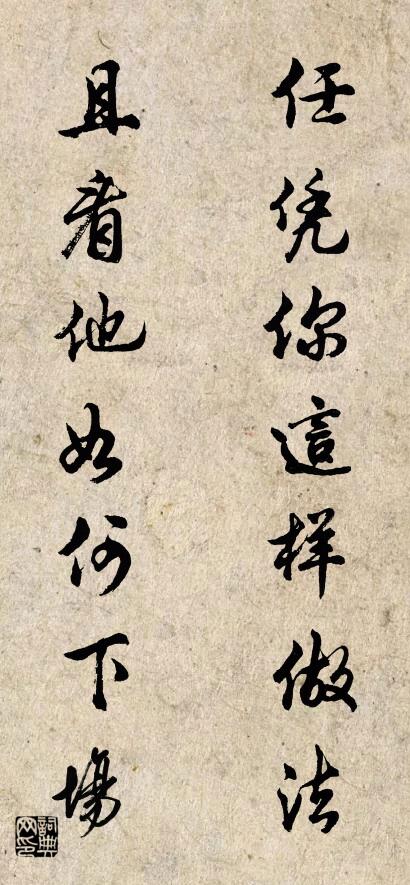 任凭你這样做法
且看他如何下場
詞典网印